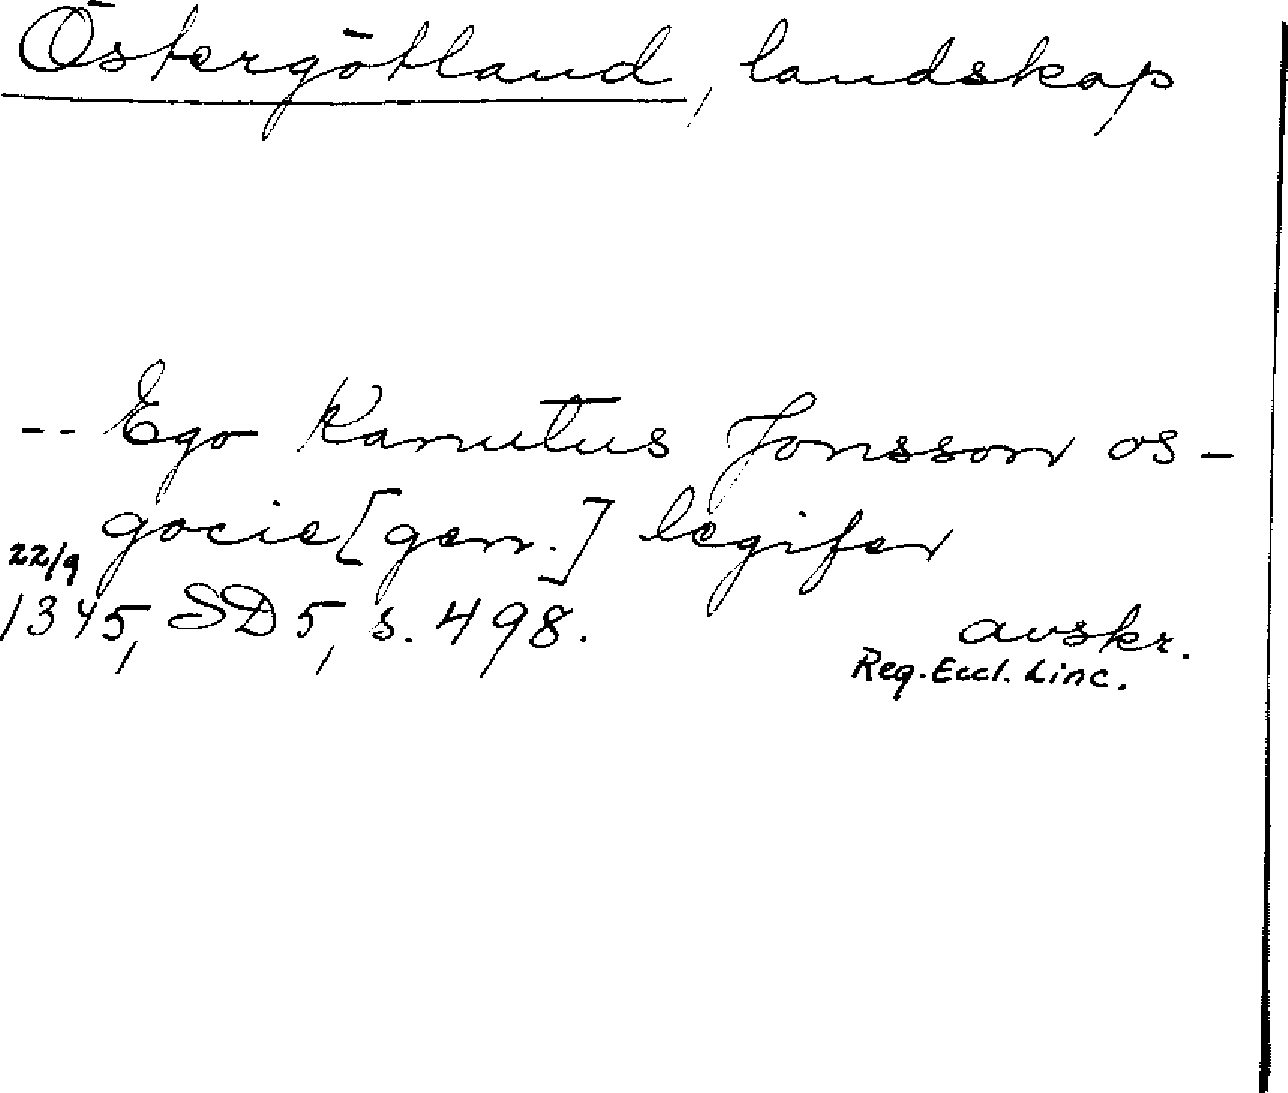 Östergötland, landskap
-- Ego Kanutus Jonsson os-
gocie [gen.] legifer
22/9
1345, SD 5, s. 498.
avskr.
Reg. Eccl. Linc.